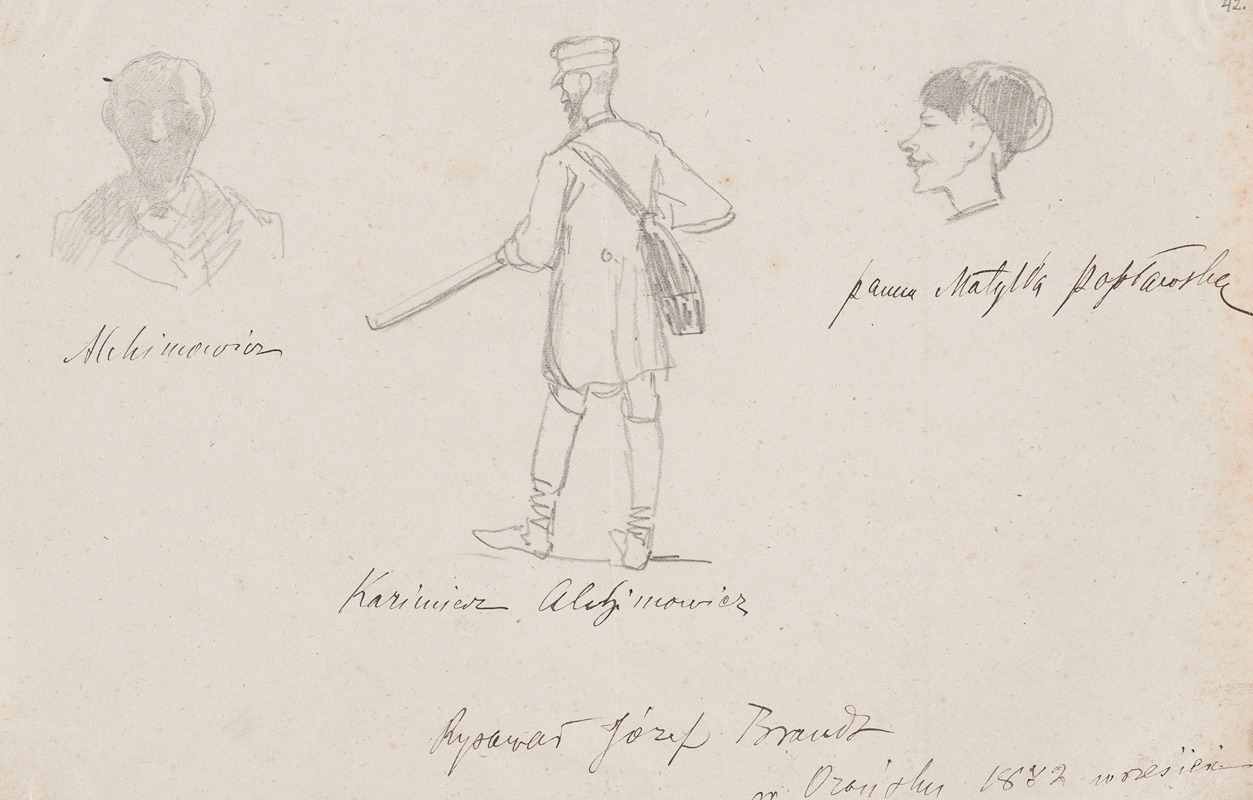 42.
Alchimowicz
panna Matylda Popławska
Kazimierz Alchimowicz
Rysował Józef Brandt
w Orońsku 1882 wrzesień